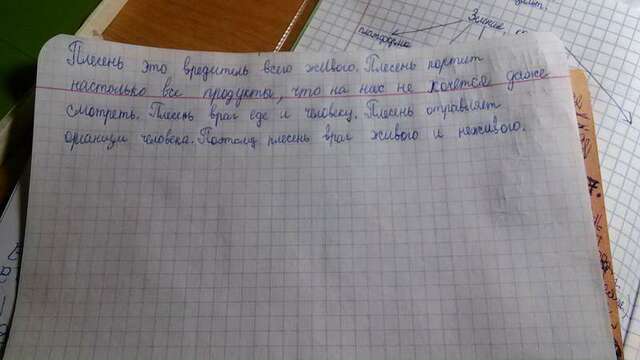 Плесень это вредитель всего живого. Плесень портит
настолько все продукты, что на них не хочется даже
смотреть. Плесень враг еде и человеку. Плесень отравляет
организм человека. Поэтому плесень враг живого и неживого.
платформа